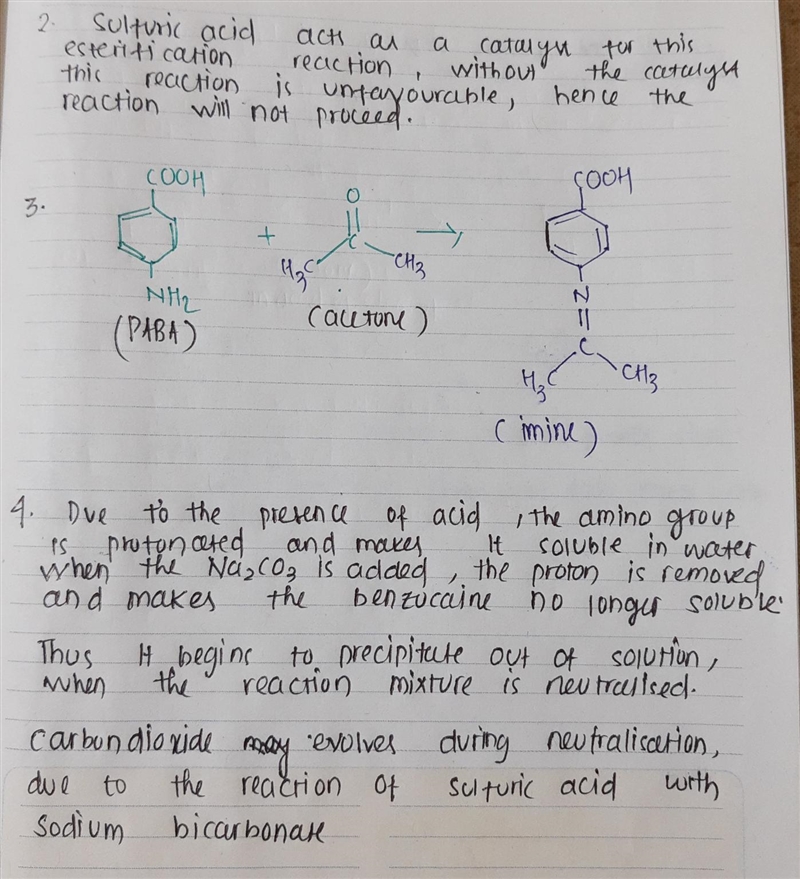 2. Sulfuric acid acts as a catalyst for this
esterification reaction, without the catalyst
this reaction is unfavourable, hence the
reaction will not proceed.
3.
COOH
NH2
(PABA)
+
O
C
H3C
CH3
(acetone)
→
COOH
N
C
H3C
CH3
(imine)
4. Due to the presence of acid, the amino group
is protonated and makes it soluble in water
when the Na2CO3 is added, the proton is removed
and makes the benzocaine no longer soluble.
Thus it begins to precipitate out of solution,
when the reaction mixture is neutralised.
Carbondioxide may evolves during neutralisation,
due to the reaction of sulfuric acid with
sodium bicarbonate